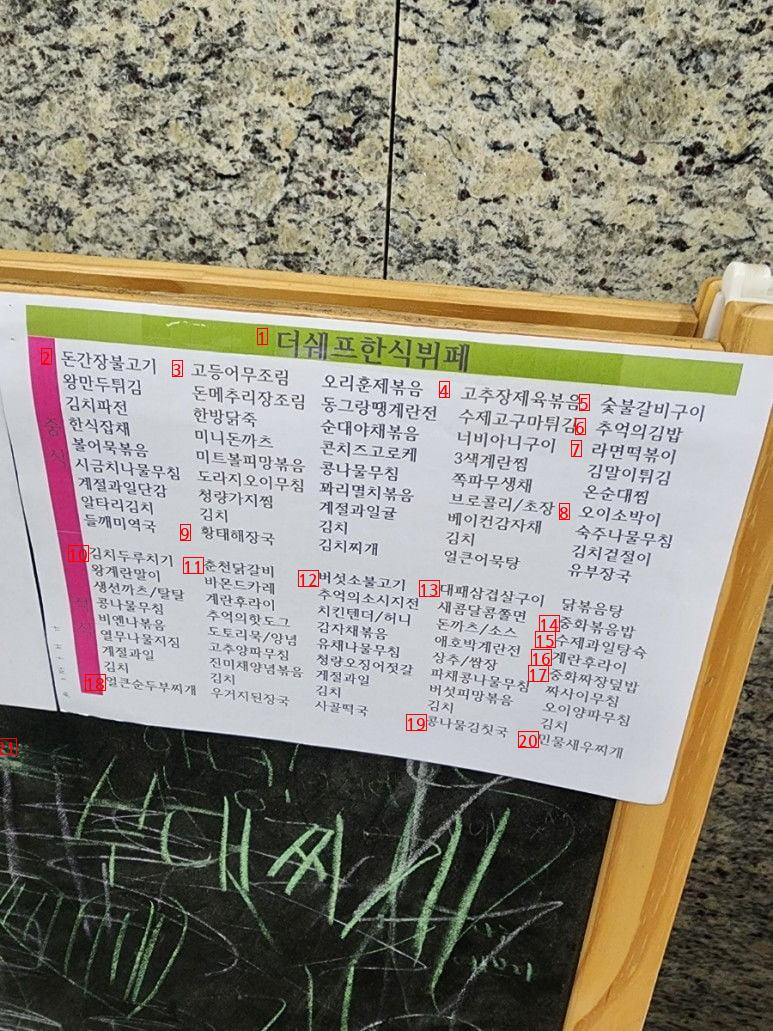 더쉐프한식뷔페
중식
돈간장불고기
왕만두튀김
김치파전
한식잡채
볼어묵볶음
시금치나물무침
계절과일단감
알타리김치
들깨미역국
고등어무조림
돈메추리장조림
한방닭죽
미니돈까츠
미트볼피망볶음
도라지오이무침
청량가지찜
김치
황태해장국
오리훈제볶음
동그랑땡계란전
순대야채볶음
콘치즈고로케
콩나물무침
꽈리멸치볶음
계절과일귤
김치
김치찌개
고추장제육볶음
수제고구마튀김
너비아니구이
3색계란찜
쪽파무생채
브로콜리/초장
베이컨감자채
김치
얼큰어묵탕
숯불갈비구이
추억의김밥
라면떡볶이
김말이튀김
온순대찜
오이소박이
숙주나물무침
김치겉절이
유부장국
석식
김치두루치기
왕계란말이
생선까츠/탈탈
콩나물무침
비엔나볶음
열무나물지짐
계절과일
김치
얼큰순두부찌개
춘천닭갈비
바몬드카레
계란후라이
추억의핫도그
도토리묵/양념
고추양파무침
진미채양념볶음
김치
우거지된장국
버섯소불고기
추억의소시지전
치킨텐더/허니
감자채볶음
유채나물무침
청량오징어젓갈
계절과일
김치
사골떡국
대패삼겹살구이
새콤달콤쫄면
돈까츠/소스
애호박계란전
상추/쌈장
파채콩나물무침
버섯피망볶음
김치
콩나물김칫국
닭볶음탕
중화볶음밥
수제과일탕슉
계란후라이
중화짜장덮밥
짜사이무침
오이양파무침
김치
민물새우찌개